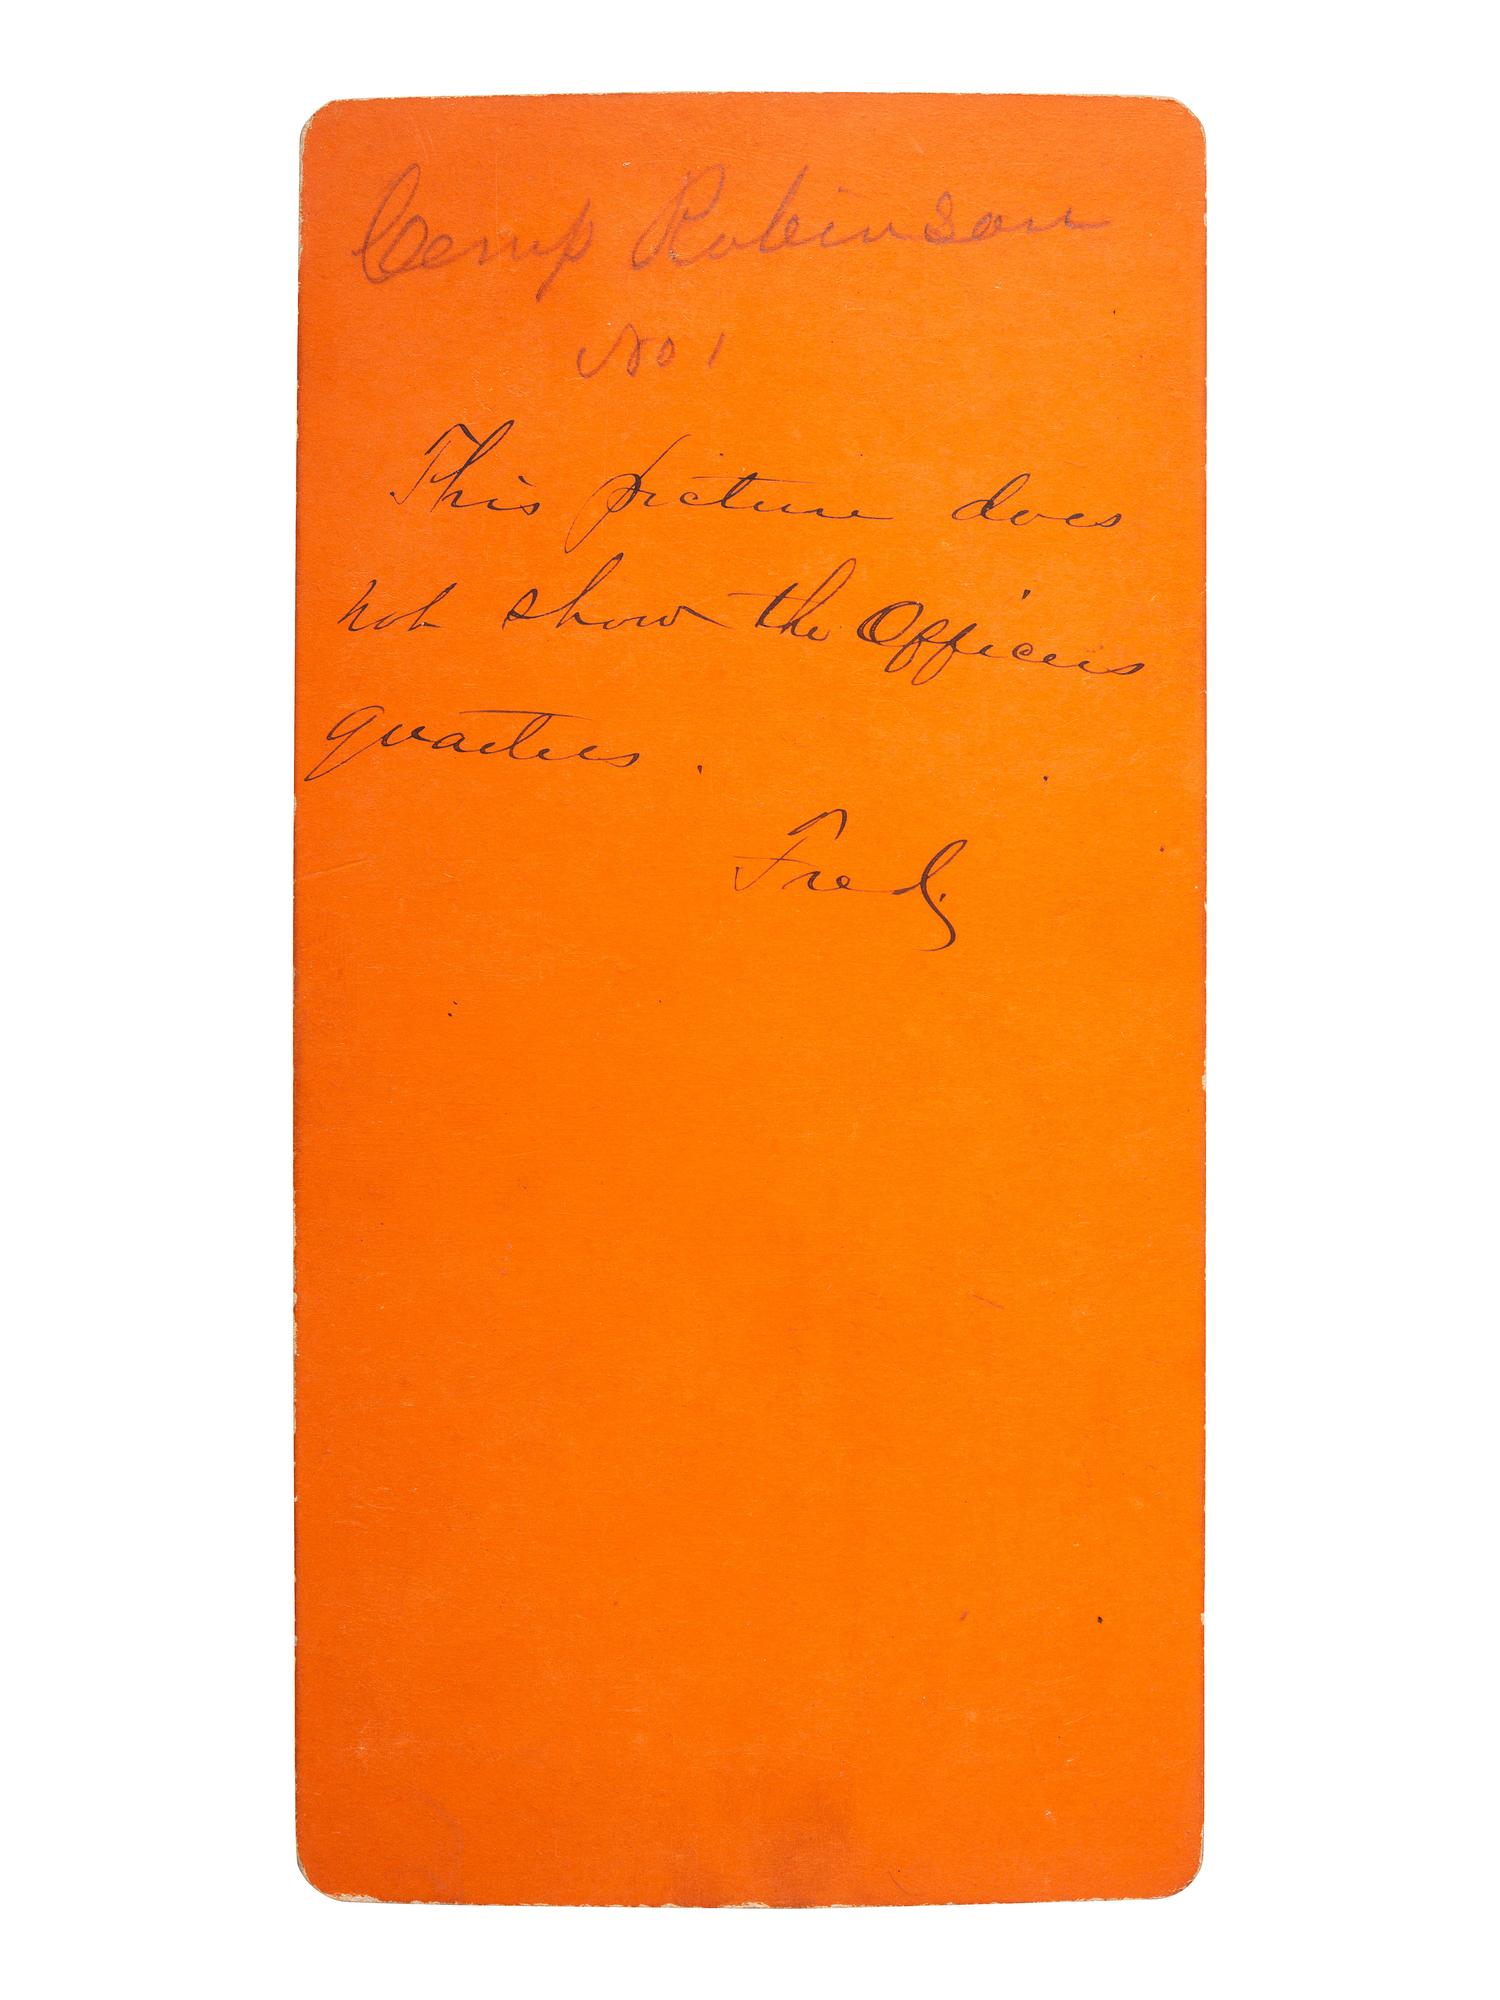 Camp Robinson
No 1
This picture does
not show the Officers
quarters.
Fred.